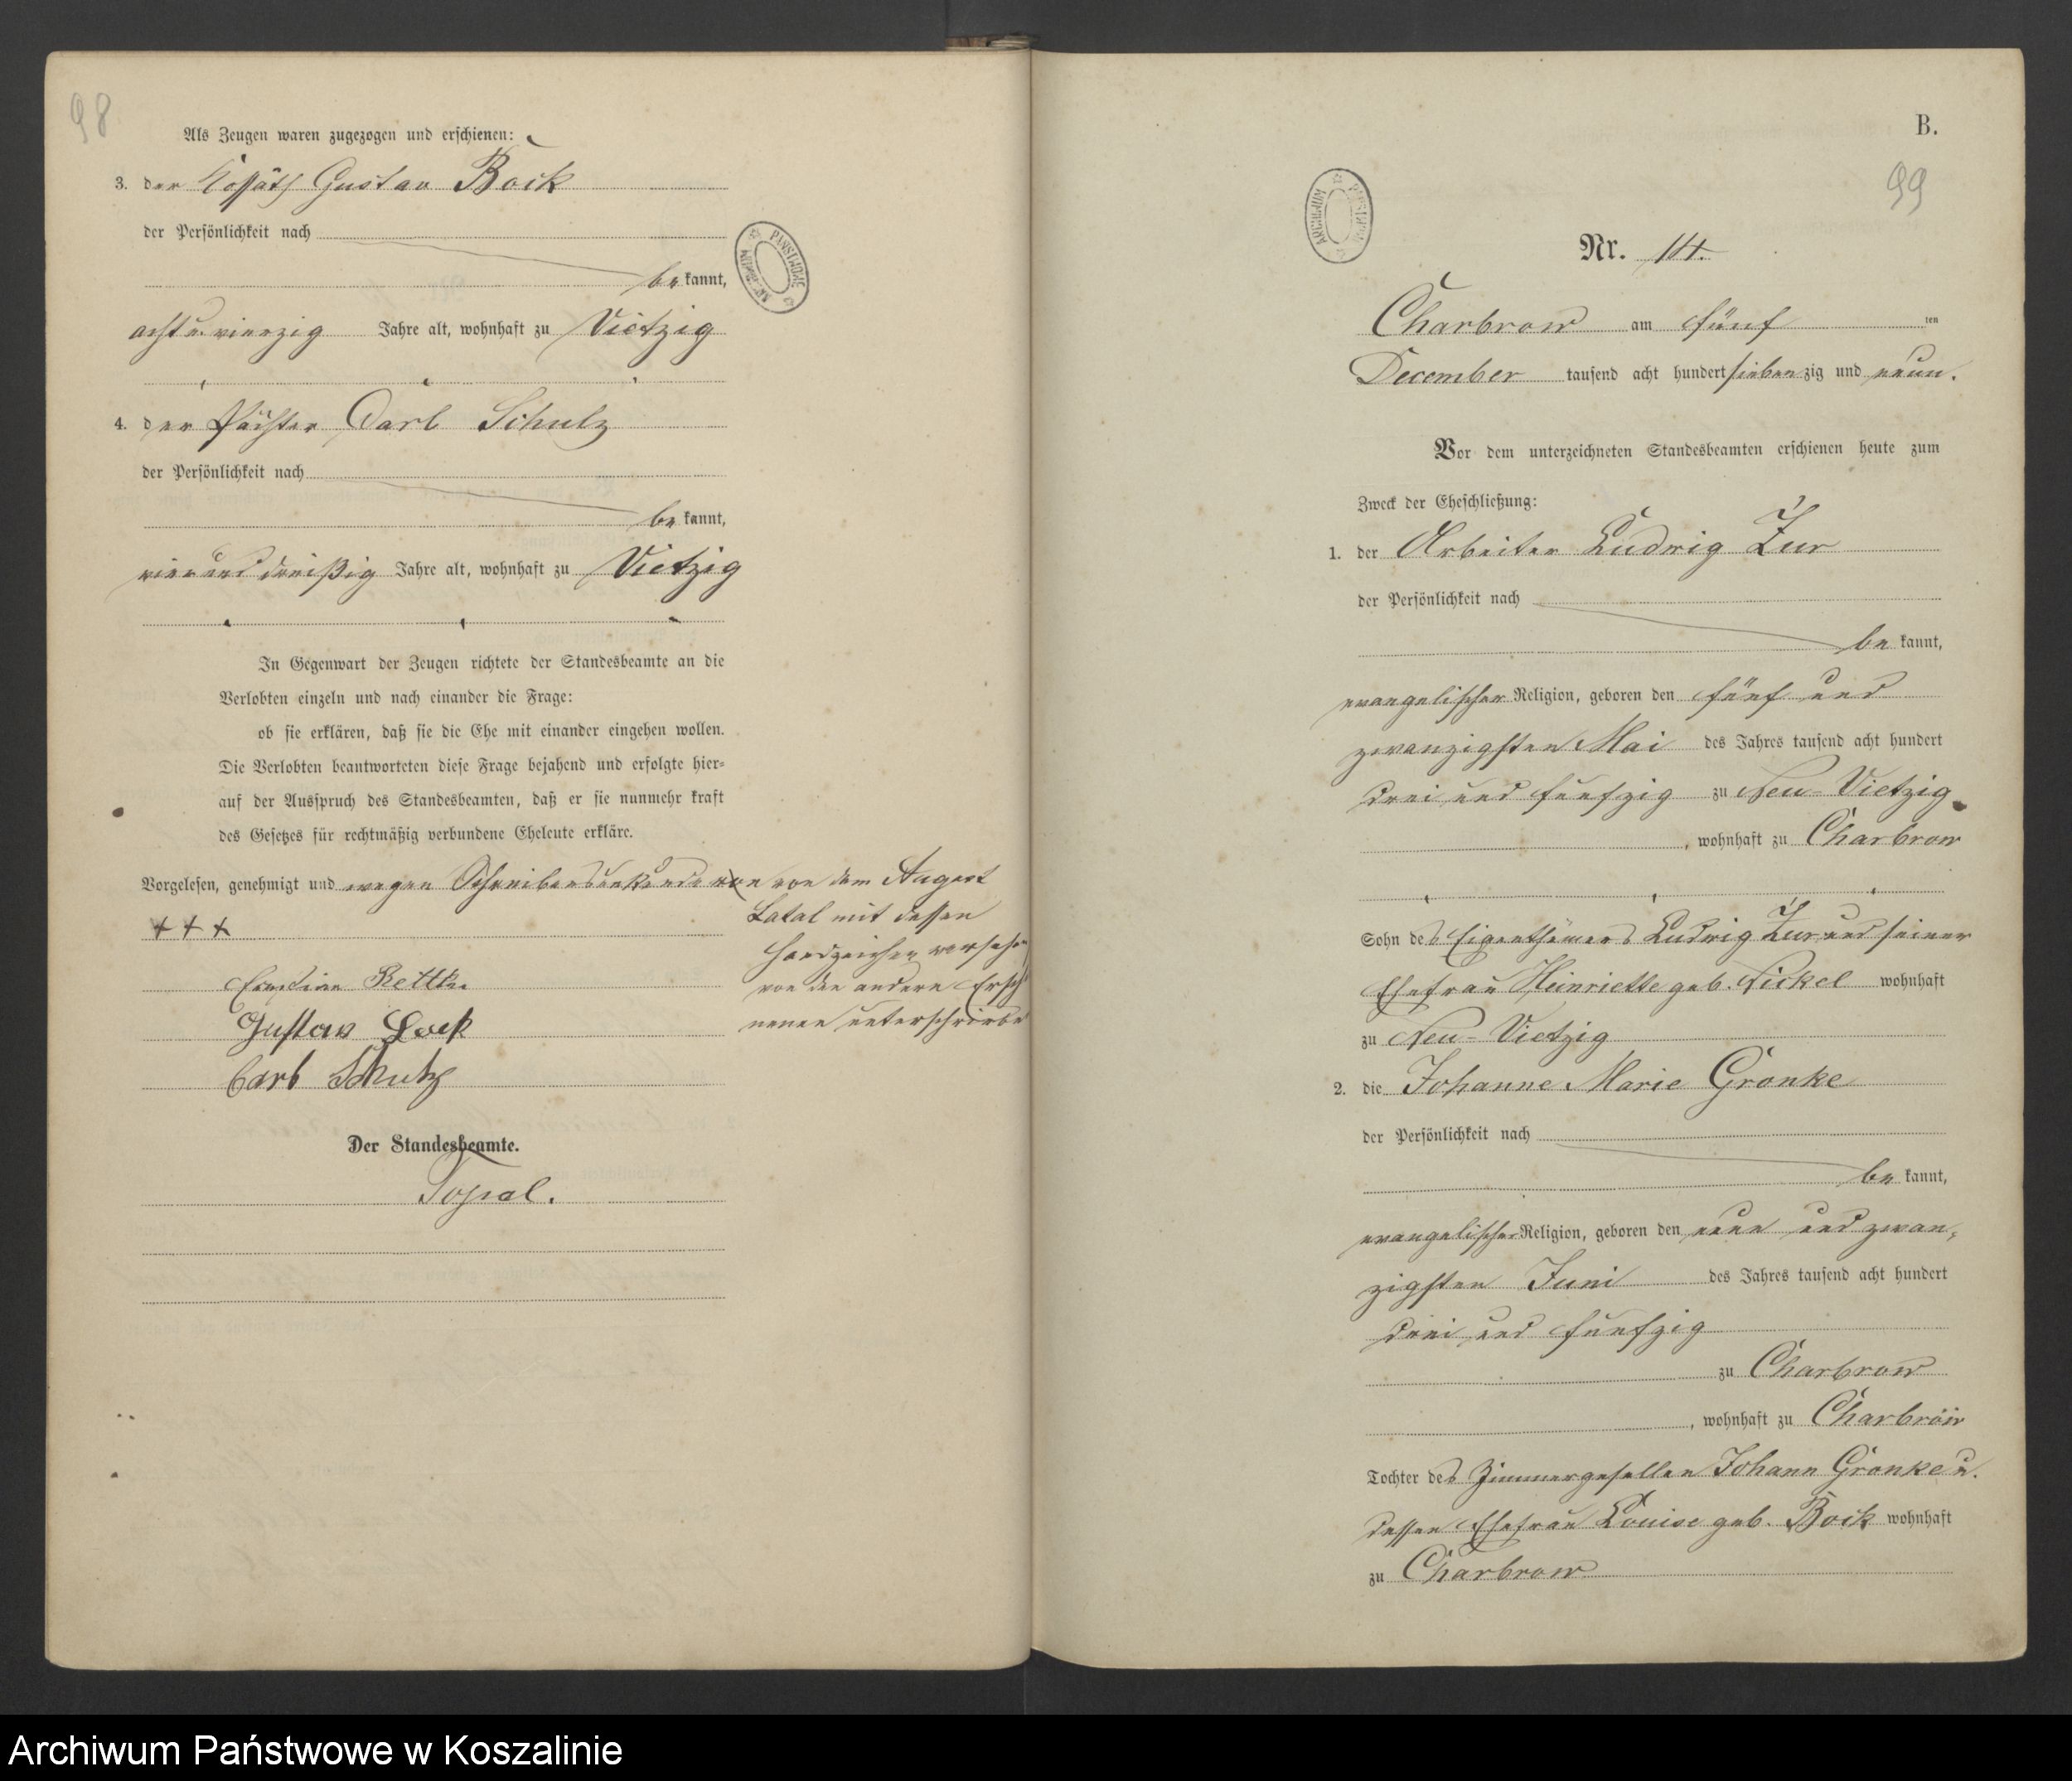 98
Als Zeugen waren zugezogen und erschienen:
3. der Kossäth Gustav Bock
der Persönlichkeit nach
be kannt,
acht u. vierzig Jahre alt, wohnhaft zu Vietzig
4. der Pächter Carl Schulz
der Persönlichkeit nach
be kannt,
vier und dreißig Jahre alt, wohnhaft zu Vietzig
In Gegenwart der Zeugen richtete der Standesbeamte an die
Verlobten einzeln und nach einander die Frage:
ob sie erklären, daß sie die Ehe mit einander eingehen wollen.
Die Verlobten beantworteten diese Frage bejahend und erfolgte hier-
auf der Ausspruch des Standesbeamten, daß er sie nunmehr kraft
des Gesetzes für rechtmäßig verbundene Eheleute erkläre.
Vorgelesen, genehmigt und wegen Schreibensunkunde von dem August
Latal mit dessen
+++
Handzeichen versehen
von den andern Ersch
nenen unterschrieben
Gustav Bock
Carl Schulz
Der Standesbeamte.
ARCHIWUM PAŃSTWOWE
B.
99
ARCHIWUM PAŃSTWOWE
Nr. 14.
Charbrow am fünf ten
December tausend acht hundert siebenzig und neun.
Vor dem unterzeichneten Standesbeamten erschienen heute zum
Zweck der Eheschließung:
1. der Arbeiter Ludwig Zur
der Persönlichkeit nach
be kannt,
evangelischer Religion, geboren den fünf und
zwanzigsten Mai des Jahres tausend acht hundert
drei und funfzig zu Neu-Vietzig
, wohnhaft zu Charbrow
Sohn des Eigenthümers Ludwig Zur und seiner
Ehefrau Heinriette geb. Nickel wohnhaft
zu Neu-Vietzig
2. die Johanne Marie Gronke
der Persönlichkeit nach
be kannt,
evangelischer Religion, geboren den neun und zwan-
zigsten Juni des Jahres tausend acht hundert
drei und funfzig
zu Charbrow
, wohnhaft zu Charbrow
Tochter des Zimmergesellen Johann Gronke u.
dessen Ehefrau Louise geb. Bock wohnhaft
zu Charbrow
Archiwum Państwowe w Koszalinie